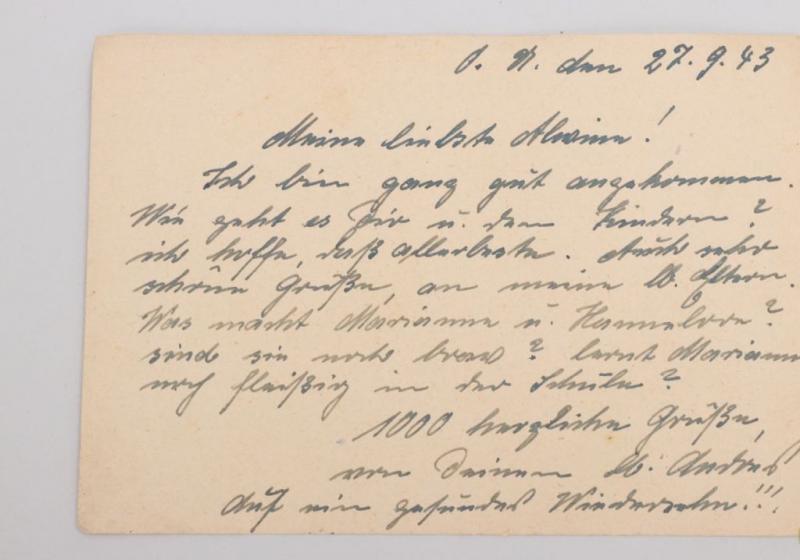 O. U. den 27.9.43
Meine liebste Alwine!
Ich bin ganz gut angekommen.
Wie geht es Dir u. den Kindern?
ich hoffe, daß allerbeste. Auch sehr
schöne Grüße, an meine lb. Eltern.
Was macht Marianne u. Hannelore?
sind sie noch brav? lernt Mariann
noch fleißig in der Schule?
1000 herzliche Grüße,
von Deinem lb. Andres
Auf ein gesundes Wiedersehn!!!